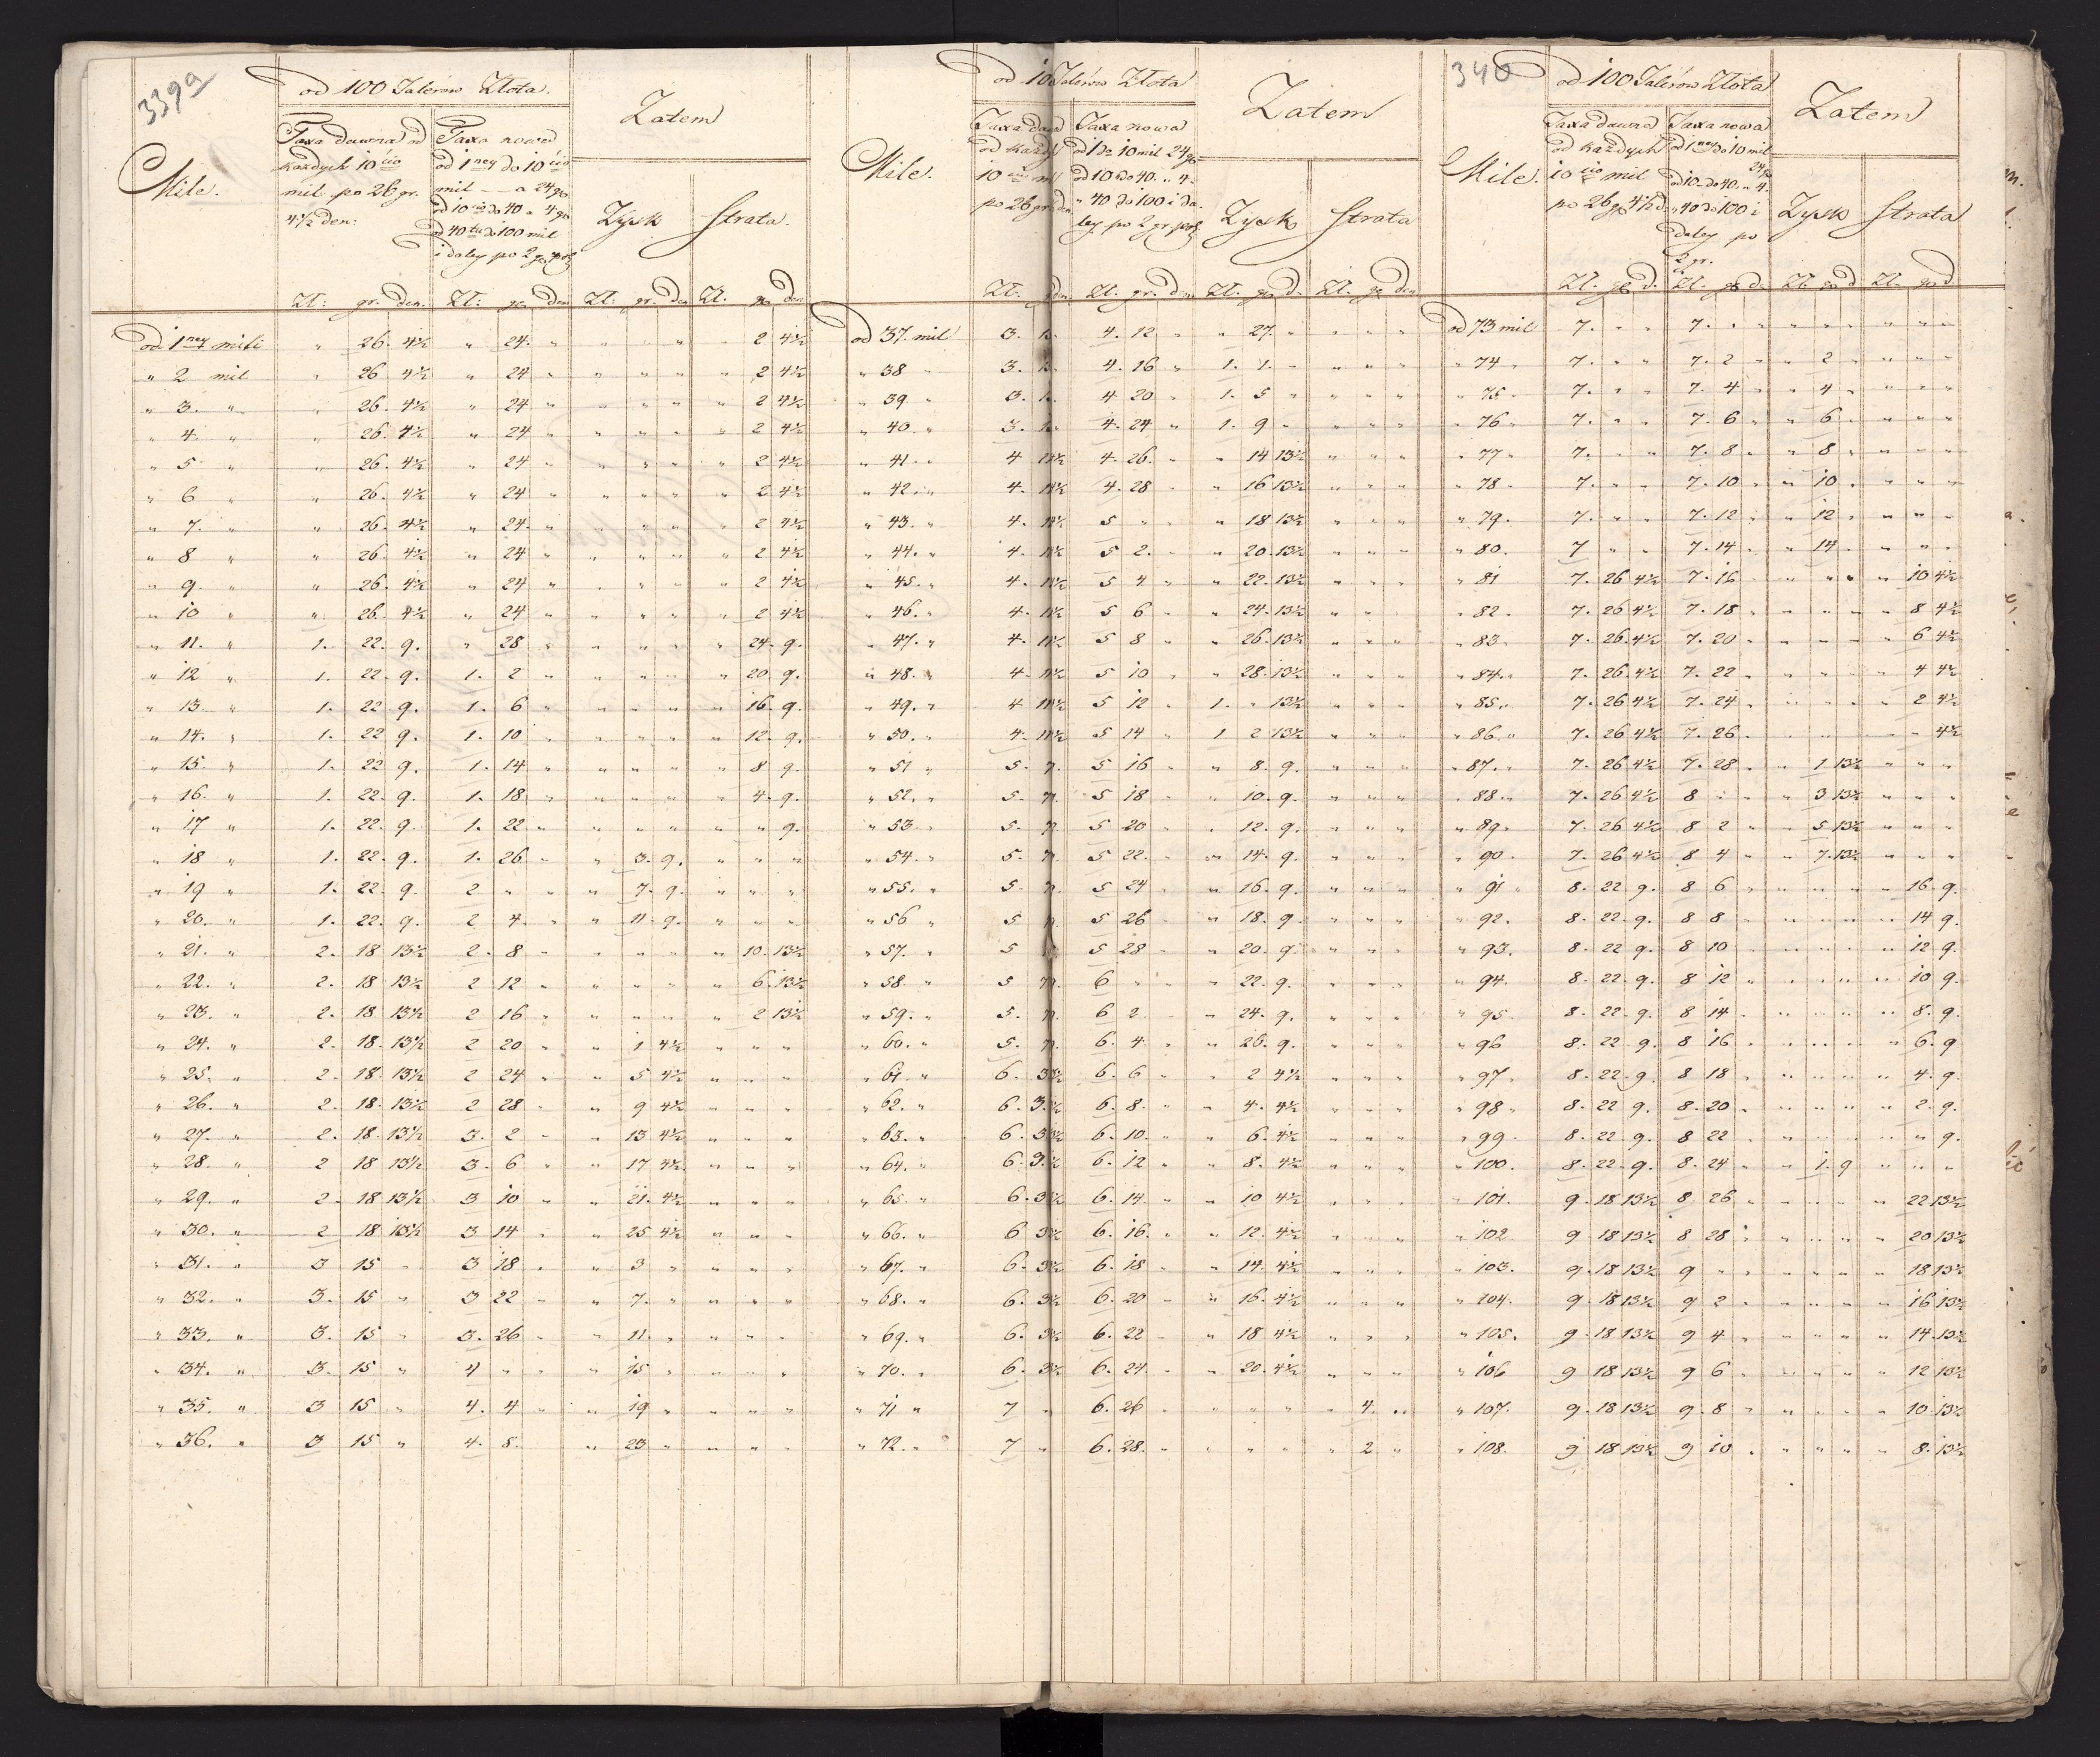 339a
od 100 Talerow Złota.
Zatem
Mile.
Taxa dawna od
każdych 10 cio
mil po 26 gr.
4½ den:
Taxa nowa
od 1 ney do 10 cio
mil — a 24 gr
od 10 cio do 40 a 4 gr
od 40 tu do 100 mil
i daley po 2 gr pol
Zysk Strata.
Zł: gr. den. Zł: gr. den Zł: gr. den Zł. gr. den
od 1 ney mili " 26. 4½ " 24. " " " " " 2 4½
" 2 mil " 26 4½ " 24 " " " " " 2 4½
" 3. " " 26. 4½ " 24 " " " " " 2 4½
" 4. " " 26. 4½ " 24 " " " " " 2 4½
" 5 " " 26. 4½ " 24 " " " " " 2 4½
" 6 " " 26. 4½ " 24 " " " " " 2 4½
" 7. " " 26. 4½ " 24. " " " " " 2 4½
" 8 " " 26. 4½ " 24 " " " " " 2 4½
" 9. " " 26. 4½ " 24 " " " " " 2 4½
" 10 " " 26. 4½ " 24 " " " " " 2 4½
" 11. " 1. 22. 9. " 28 " " " " " 24. 9.
" 12 " 1. 22. 9. 1. 2 " " " " " 20 9.
" 13. " 1. 22 9. 1. 6 " " " " " 16. 9.
" 14. " 1. 22 9. 1. 10 " " " " " 12. 9.
" 15. " 1. 22 9. 1. 14 " " " " " 8 9.
" 16. " 1. 22. 9. 1. 18 " " " " " 4. 9.
" 17 " 1. 22. 9. 1. 22 " " " " " " 9.
" 18 " 1. 22. 9. 1. 26 " " 3. 9. " " "
" 19 " 1. 22. 9. 2 " " " 7. 9. " " "
" 20. " 1. 22. 9. 2 4. " " 11. 9. " " "
" 21. " 2. 18 13½ 2. 8 " " " " " 10. 13½
" 22. " 2. 18 13½ 2 12 " " " " " 6. 13½
" 23. " 2. 18 13½ 2 16 " " " " " 2 13½
" 24. " 2. 18. 13½ 2 20 " " 1 4½ " " "
" 25. " 2. 18. 13½ 2 24 " " 5 4½ " " "
" 26. " 2. 18. 13½ 2 28 " " 9 4½ " " "
" 27. " 2. 18. 13½ 3. 2 " " 13 4½ " " "
" 28. " 2 18 13½ 3. 6 " " 17 4½ " " "
" 29. " 2. 18 13½ 3 10 " " 21. 4½ " " "
" 30. " 2 18 13½ 3 14 " " 25 4½ " " "
" 31. " 3 15 " 3 18 " " 3 " " " "
" 32. " 3. 15 " 3 22 " " 7. " " " "
" 33. " 3. 15 " 3. 26 " " 11. " " " "
" 34. " 3. 15 " 4 " " " 15 " " " "
" 35. " 3 15 " 4. 4 " " 19 " " " "
" 36. " 3 15 " 4. 8. " " 23 " " " "
od 10 Talerow Złota
Zatem
Mile.
Taxa
od każdy
10 cio
po 26 gr
Taxa nowa
od 1 do 10 mil 24 gr
od 10 do 40. " 4.
" 40 do 100 i da-
ley po 2 gr. pol
Zysk Strata
Zł. Zł. gr. den Zł. gr d. Zł. gr den
od 37. mil 3. 4. 12 " " 27. " " " "
" 38 " 3. 4. 16 " 1. 1. " " " "
" 39 " 3. 4 20 " 1. 5 " " " "
" 40. " 3. 4. 24 " 1. 9 " " " "
" 41 " 4 4. 26. " " 14 13½ " " "
" 42 " 4. 4. 28 " " 16 13½ " " "
" 43. " 4. 5 " " " 18 13½ " " "
" 44. " 4. 5 2. " " 20. 13½ " " "
" 45. " 4. 5 4 " " 22. 13½ " " "
" 46. " 4. 5 6 " " 24. 13½ " " "
" 47. " 4. 5 8 " " 26. 13½ " " "
" 48. " 4. 5 10 " " 28. 13½ " " "
" 49. " 4 5 12 " 1. " 13½ " " "
" 50. " 4. 5 14 " 1 2 13½ " " "
" 51 " 5. 5 16 " " 8. 9. " " "
" 52. " 5. 5 18 " " 10. 9. " " "
" 53. " 5. 5 20 " " 12. 9. " " "
" 54. " 5. 5 22. " " 14. 9. " " "
" 55. " 5. 5 24 " " 16. 9. " " "
" 56 " 5 5 26 " " 18. 9. " " "
" 57. " 5 5 28 " " 20. 9. " " "
" 58. " 5 6 " " " 22. 9. " " "
" 59. " 5. 6 2 " " 24. 9. " " "
" 60. " 5. 6. 4. " " 26. 9. " " "
" 61. " 6. 6. 6 " " 2 4½ " " "
" 62. " 6. 6. 8. " " 4. 4½ " " "
" 63. " 6. 6. 10. " " 6. 4½ " " "
" 64. " 6. 6. 12 " " 8. 4½ " " "
" 65. " 6. 6. 14. " " 10 4½ " " "
" 66. " 6 6. 16. " " 12. 4½ " " "
" 67. " 6. 6. 18 " " 14. 4½ " " "
" 68. " 6. 6. 20 " " 16. 4½ " " "
" 69. " 6. 6. 22 " " 18 4½ " " "
" 70. " 6. 6. 24. " " 20. 4½ " " "
" 71 " 7 " 6. 26 " " " " " 4. "
" 72. " 7 " 6. 28. " " " " " 2 "
340
od 100 Talerow Złota
Zatem
Mile.
Taxa dawna
od każdych
10 cio mil
po 26 gr 4½ d.
Taxa nowa
od 1 ney do 10 mil
24 gr
od 10 do 40. " 4.
" 40 do 100 i
daley po
2 gr.
Zysk Strata
Zł. gr d. Zł. gr d. Zł gr d Zł. gr d
od 73 mil 7. " " 7. " " " " " " " "
" 74 " 7. " " 7. 2 " " 2 " " " "
" 75 " 7. " " 7. 4 " " 4 " " " "
" 76 " 7. " " 7. 6 " " 6 " " " "
" 77 " 7. " " 7. 8 " " 8 " " " "
" 78 " 7. " " 7. 10 " " 10 " " " "
" 79. 7. " " 7. 12 " " 12 " " " "
" 80. 7 " " 7. 14 " " 14 " " " "
" 81 7. 26 4½ 7. 16 " " " " " 10 4½
" 82. 7. 26 4½ 7. 18 " " " " " 8 4½
" 83. 7. 26. 4½ 7. 20 " " " " " 6 4½
" 84. " 7. 26. 4½ 7. 22 " " " " " 4 4½
" 85. " 7. 26 4½ 7. 24. " " " " " 2 4½
" 86. " 7. 26 4½ 7. 26 " " " " " " 4½
" 87. " 7. 26 4½ 7. 28 " " 1 13½ " " "
" 88. " 7. 26 4½ 8 " " " 3 13½ " " "
" 89. 7. 26 4½ 8 2 " " 5 13½ " " "
" 90. 7. 26 4½ 8 4 " " 7. 13½ " " "
" 91 " 8. 22 9. 8 6 " " " " " 16. 9.
" 92. 8. 22. 9. 8 8 " " " " " 14 9.
" 93. 8. 22 9. 8 10 " " " " " 12 9.
" 94. 8. 22. 9. 8 12 " " " " " 10 9.
" 95. 8. 22. 9. 8 14 " " " " " 8. 9.
" 96 8. 22. 9. 8 16 " " " " " 6. 9
" 97. 8. 22. 9. 8 18 " " " " " 4. 9.
" 98 " 8. 22 9. 8. 20 " " " " " 2. 9.
" 99. 8. 22. 9. 8 22 " " " " " " 9.
" 100. 8. 22. 9. 8. 24 " " 1. 9 " " "
" 101. 9. 18 13½ 8. 26 " " " " " 22 13½
" 102 9 18 13½ 8 28 " " " " " 20 13½
" 103. 9. 18 13½ 9 " " " " " " 18 13½
" 104. 9. 18 13½ 9 2 " " " " " 16 13½
" 105. 9. 18 13½ 9 4 " " " " " 14. 13½
" 106 9 18 13½ 9 6 " " " " " 12 13½
" 107. 9. 18 13½ 9. 8 " " " " " 10. 13½
" 108. 9 18 13½ 9 10 " " " " " 8. 13½